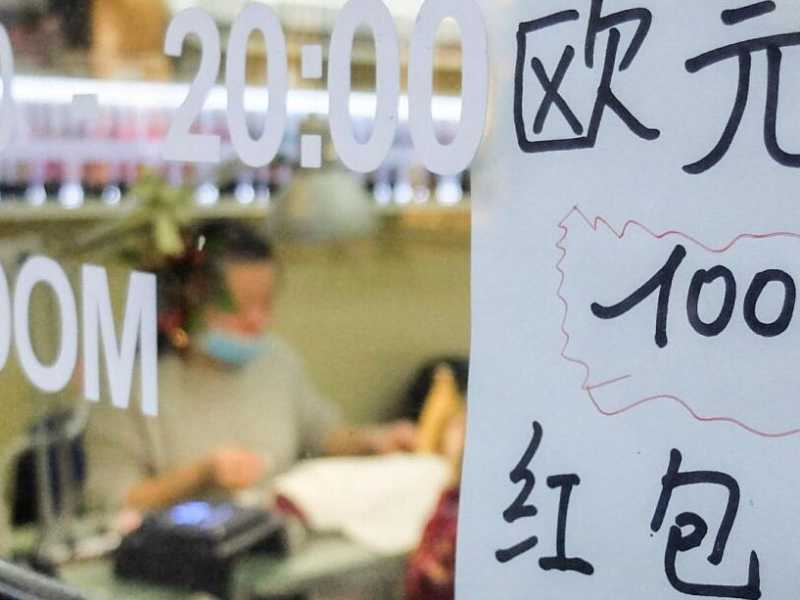 - 20:00
OOM
欧元
100
红包